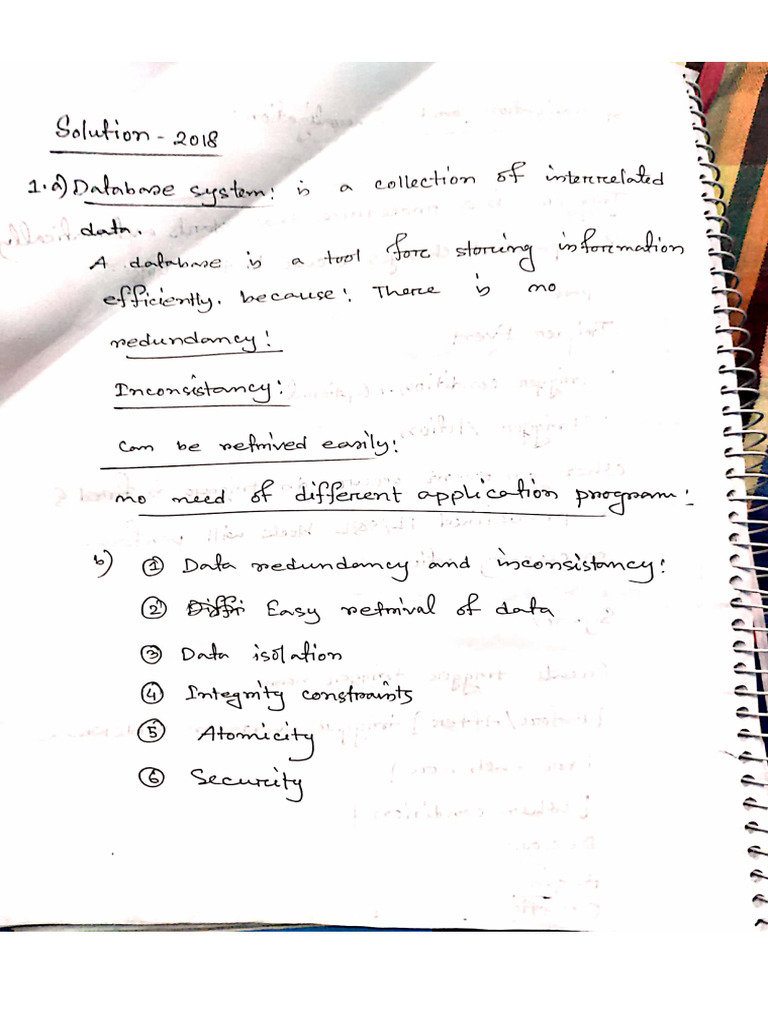 Solution - 2018
1. a) Database system: is a collection of interrelated
data.
A database is a tool for storing information
efficiently. because: There is no
redundancy!
Inconsistancy:
can be retrived easily!
no need of different application program:
b) ① Data redundancy and inconsistancy:
② Diffi Easy retrival of data.
③ Data isolation
④ Integrity constraints
⑤ Atomicity
⑥ Security